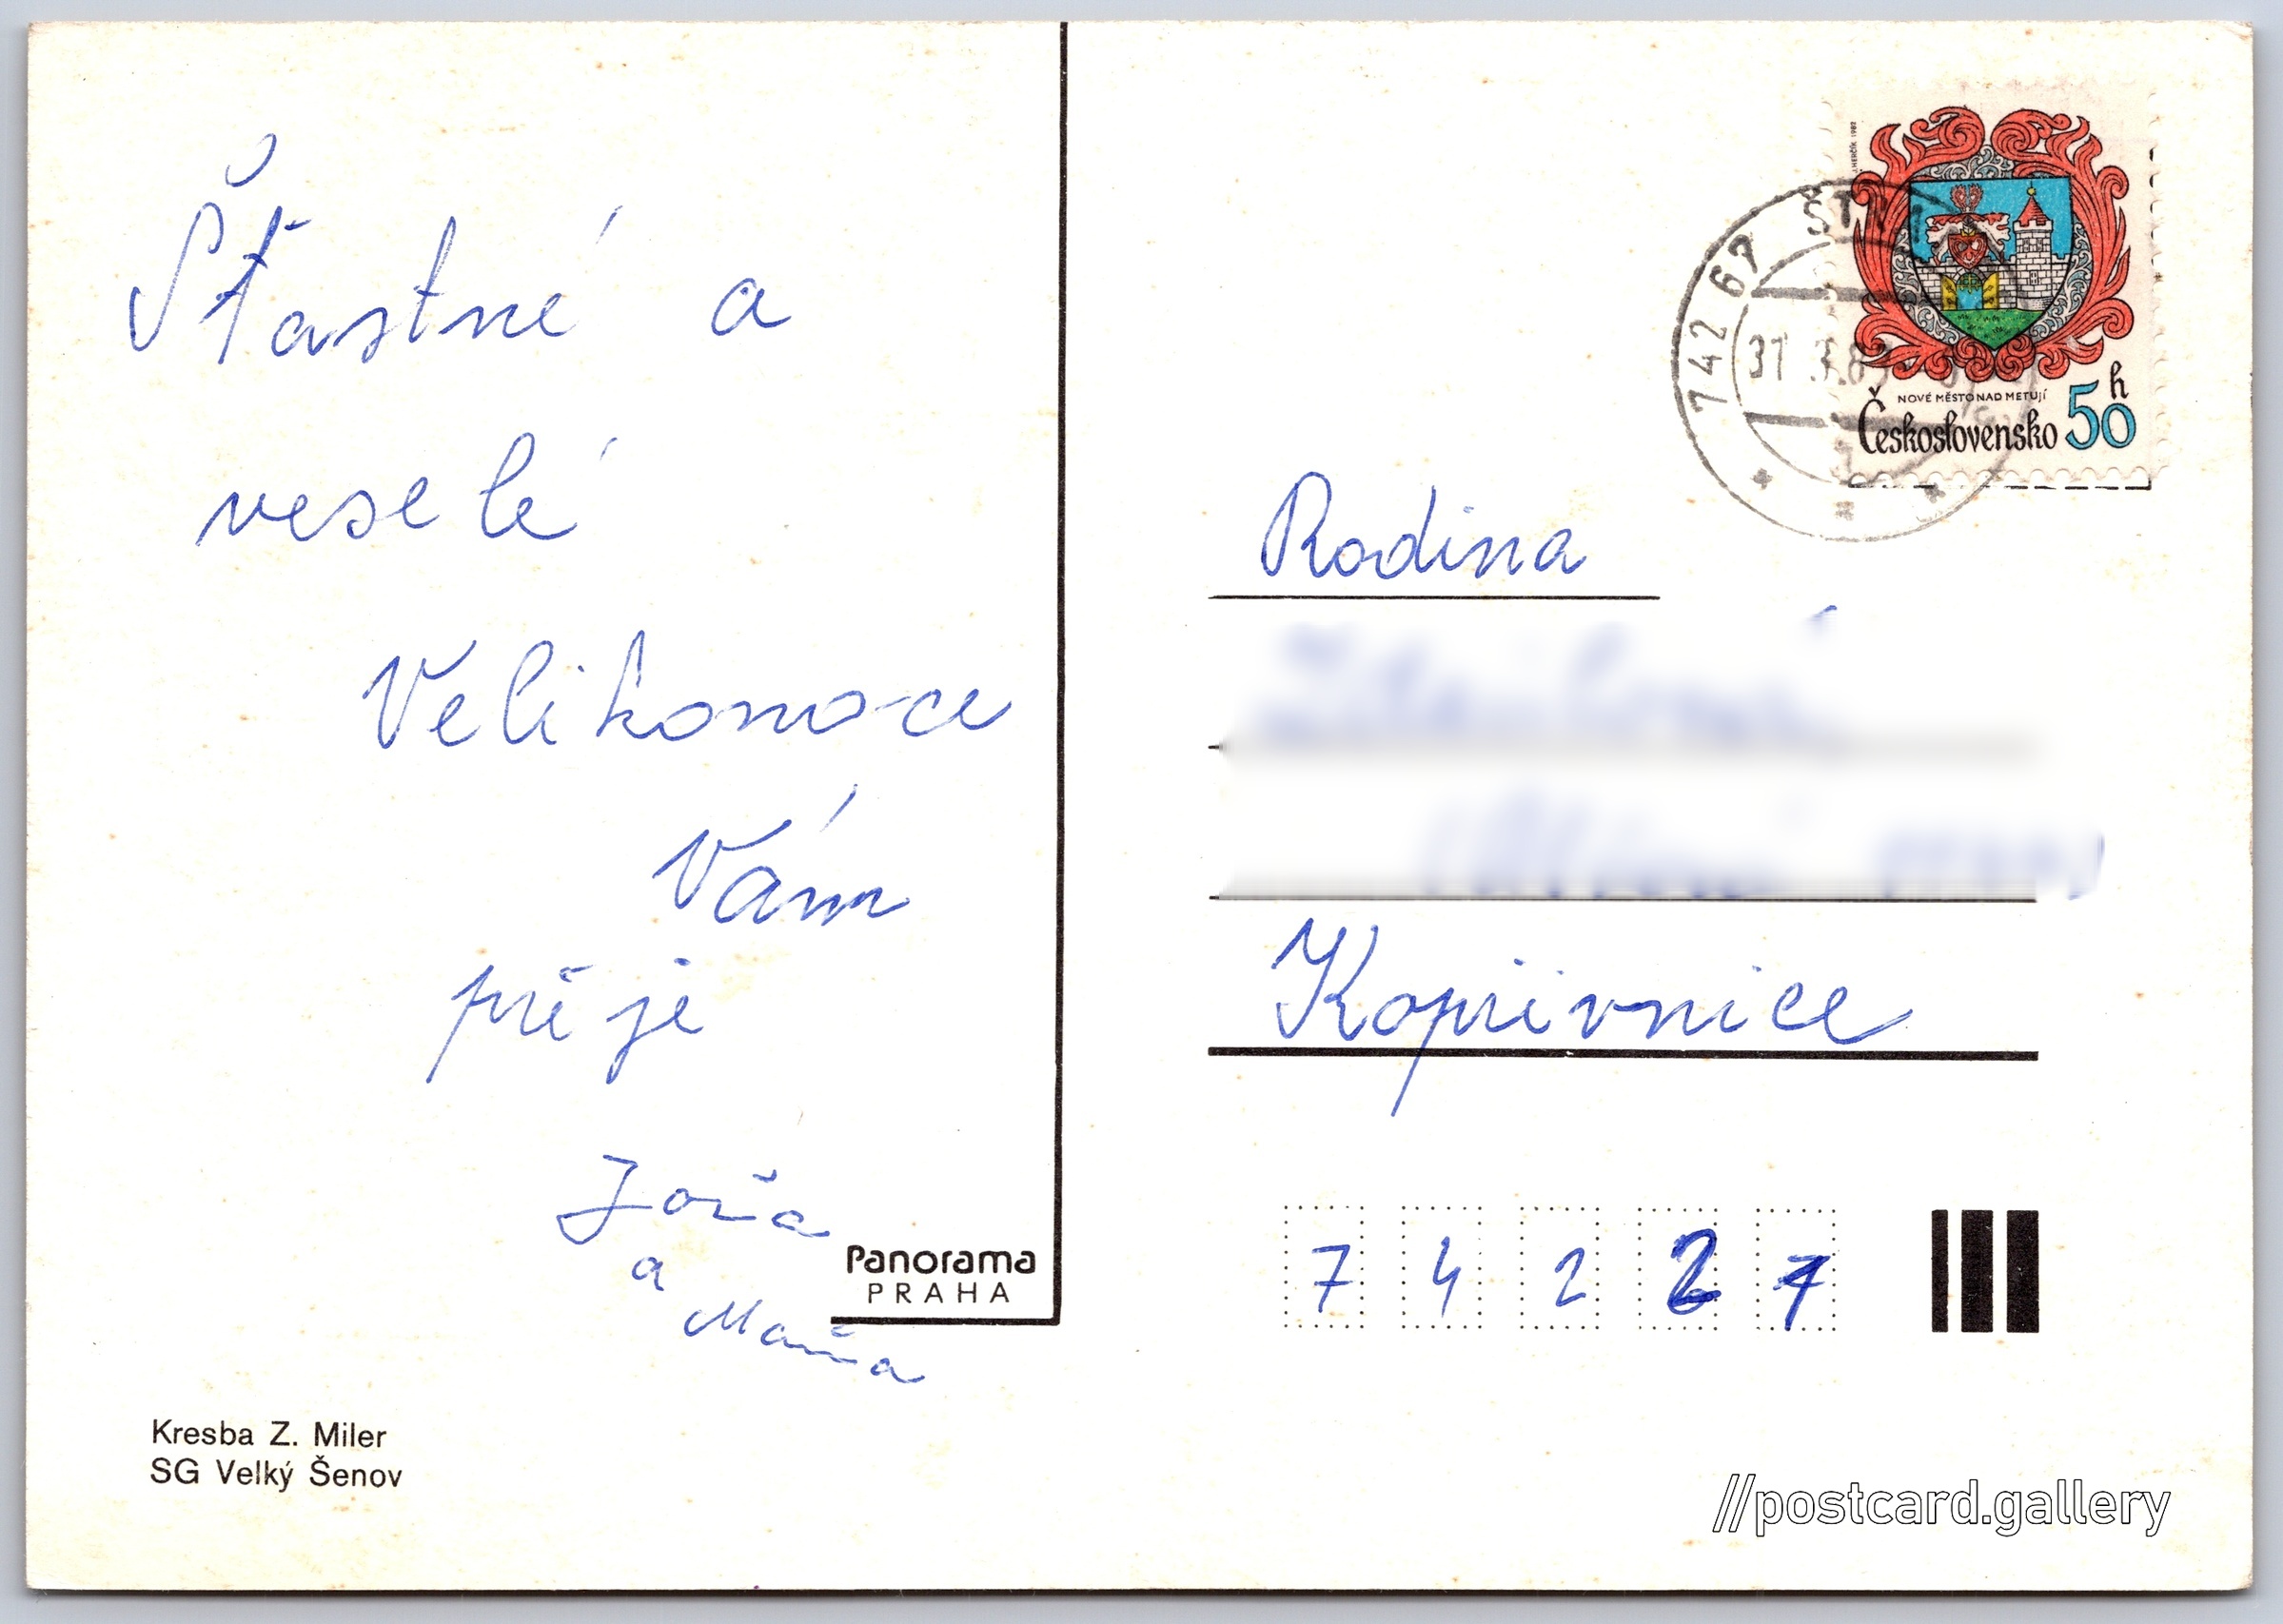 Šťastné a
veselé
Velikonoce
Vám
přeje
Joža
a Mařa
Panorama
PRAHA
Kresba Z. Miler
SG Velký Šenov
J. HERČÍK 1982
NOVÉ MĚSTO NAD METUJÍ
Československo 50 h
742 67
31.3.83
Rodina
Kopřivnice
7 4 2 2 1
//postcard.gallery